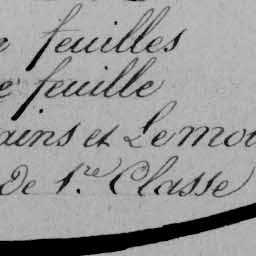 feuilles
feuille
ains et Lemoi
de 1.re Classe